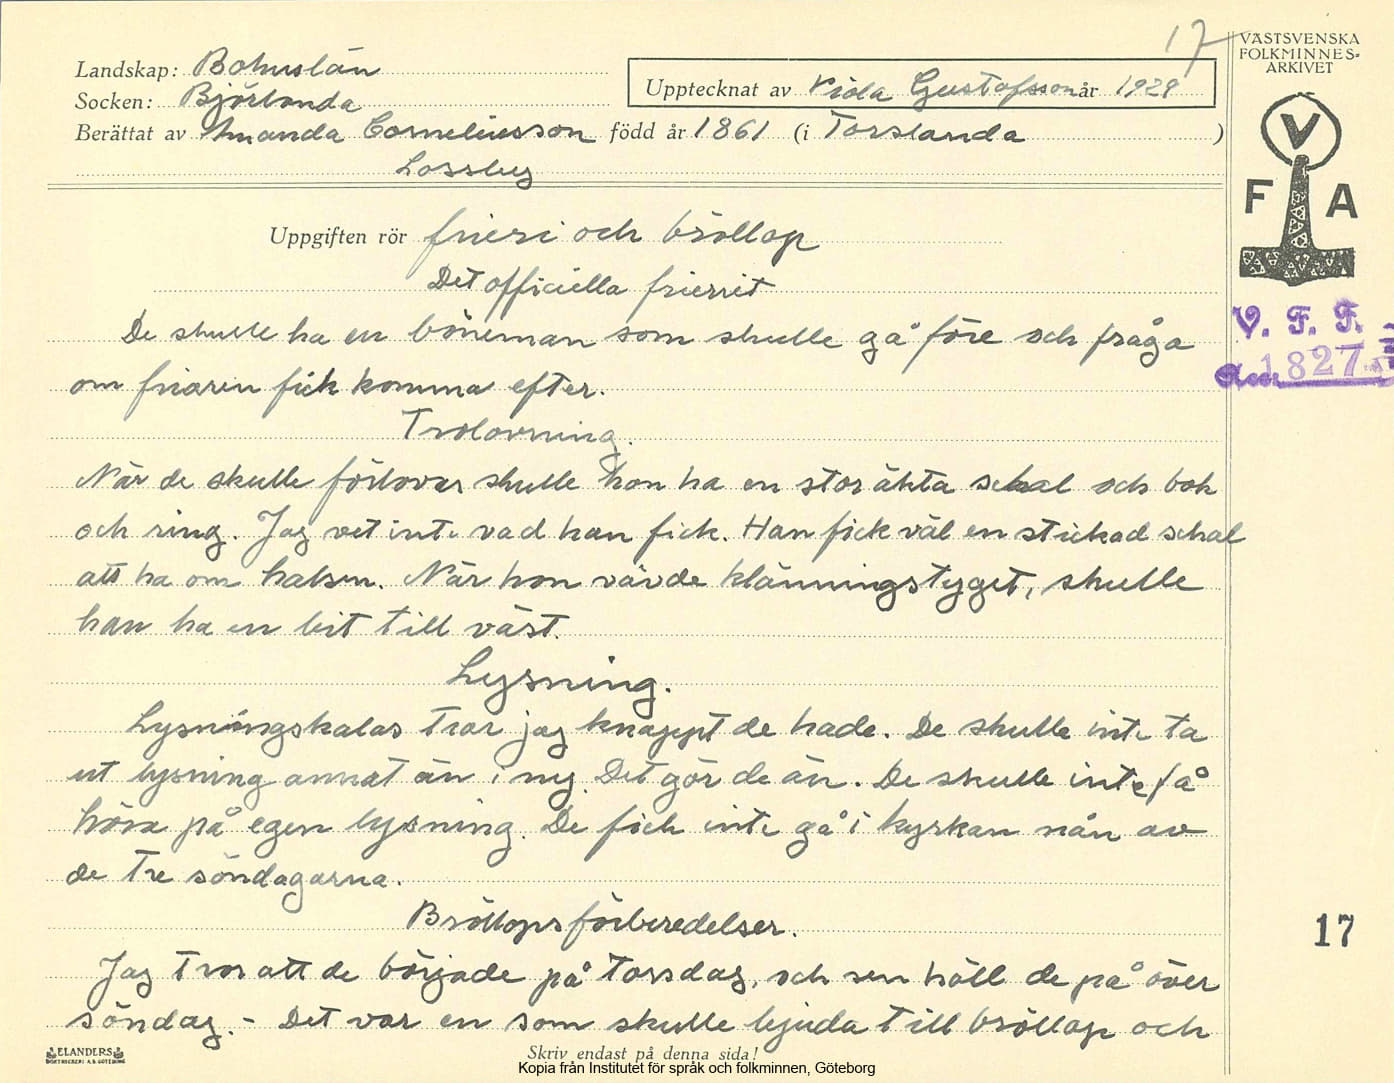 17
VÄSTSVENSKA
FOLKMINNES-
ARKIVET
Landskap: Bohuslän
Socken: Björlanda
Upptecknat av Viola Gustafsson år 1929
Berättat av Amanda Corneliusson född år 1861 (i Torslanda )
Lossby
V
F A
Uppgiften rör frieri och bröllop
Det officiella frieriet
V. F. F.
1827
De skulle ha en böneman som skulle gå före och fråga
om friaren fick komma efter.
Trolovning.
När de skulle förlovas skulle hon ha en stor äkta schal och bok
och ring. Jag vet inte vad han fick. Han fick väl en stickad schal
att ha om halsen. När hon vävde klänningstyget, skulle
han ha en bit till väst.
Lysning.
Lysningskalas tror jag knappt de hade. De skulle inte ta
ut lysning annat än i ny. Det gör de än. De skulle inte få
höra på egen lysning. De fick inte gå i kyrkan nån av
de tre söndagarna.
Bröllopsförberedelser.
17
Jag tror att de började på torsdag, och sen höll de på över
söndag. - Det var en som skulle bjuda till bröllop och
ELANDERS
BOKTRYCKERI A.B. GÖTEBORG
Skriv endast på denna sida!
Kopia från Institutet för språk och folkminnen, Göteborg